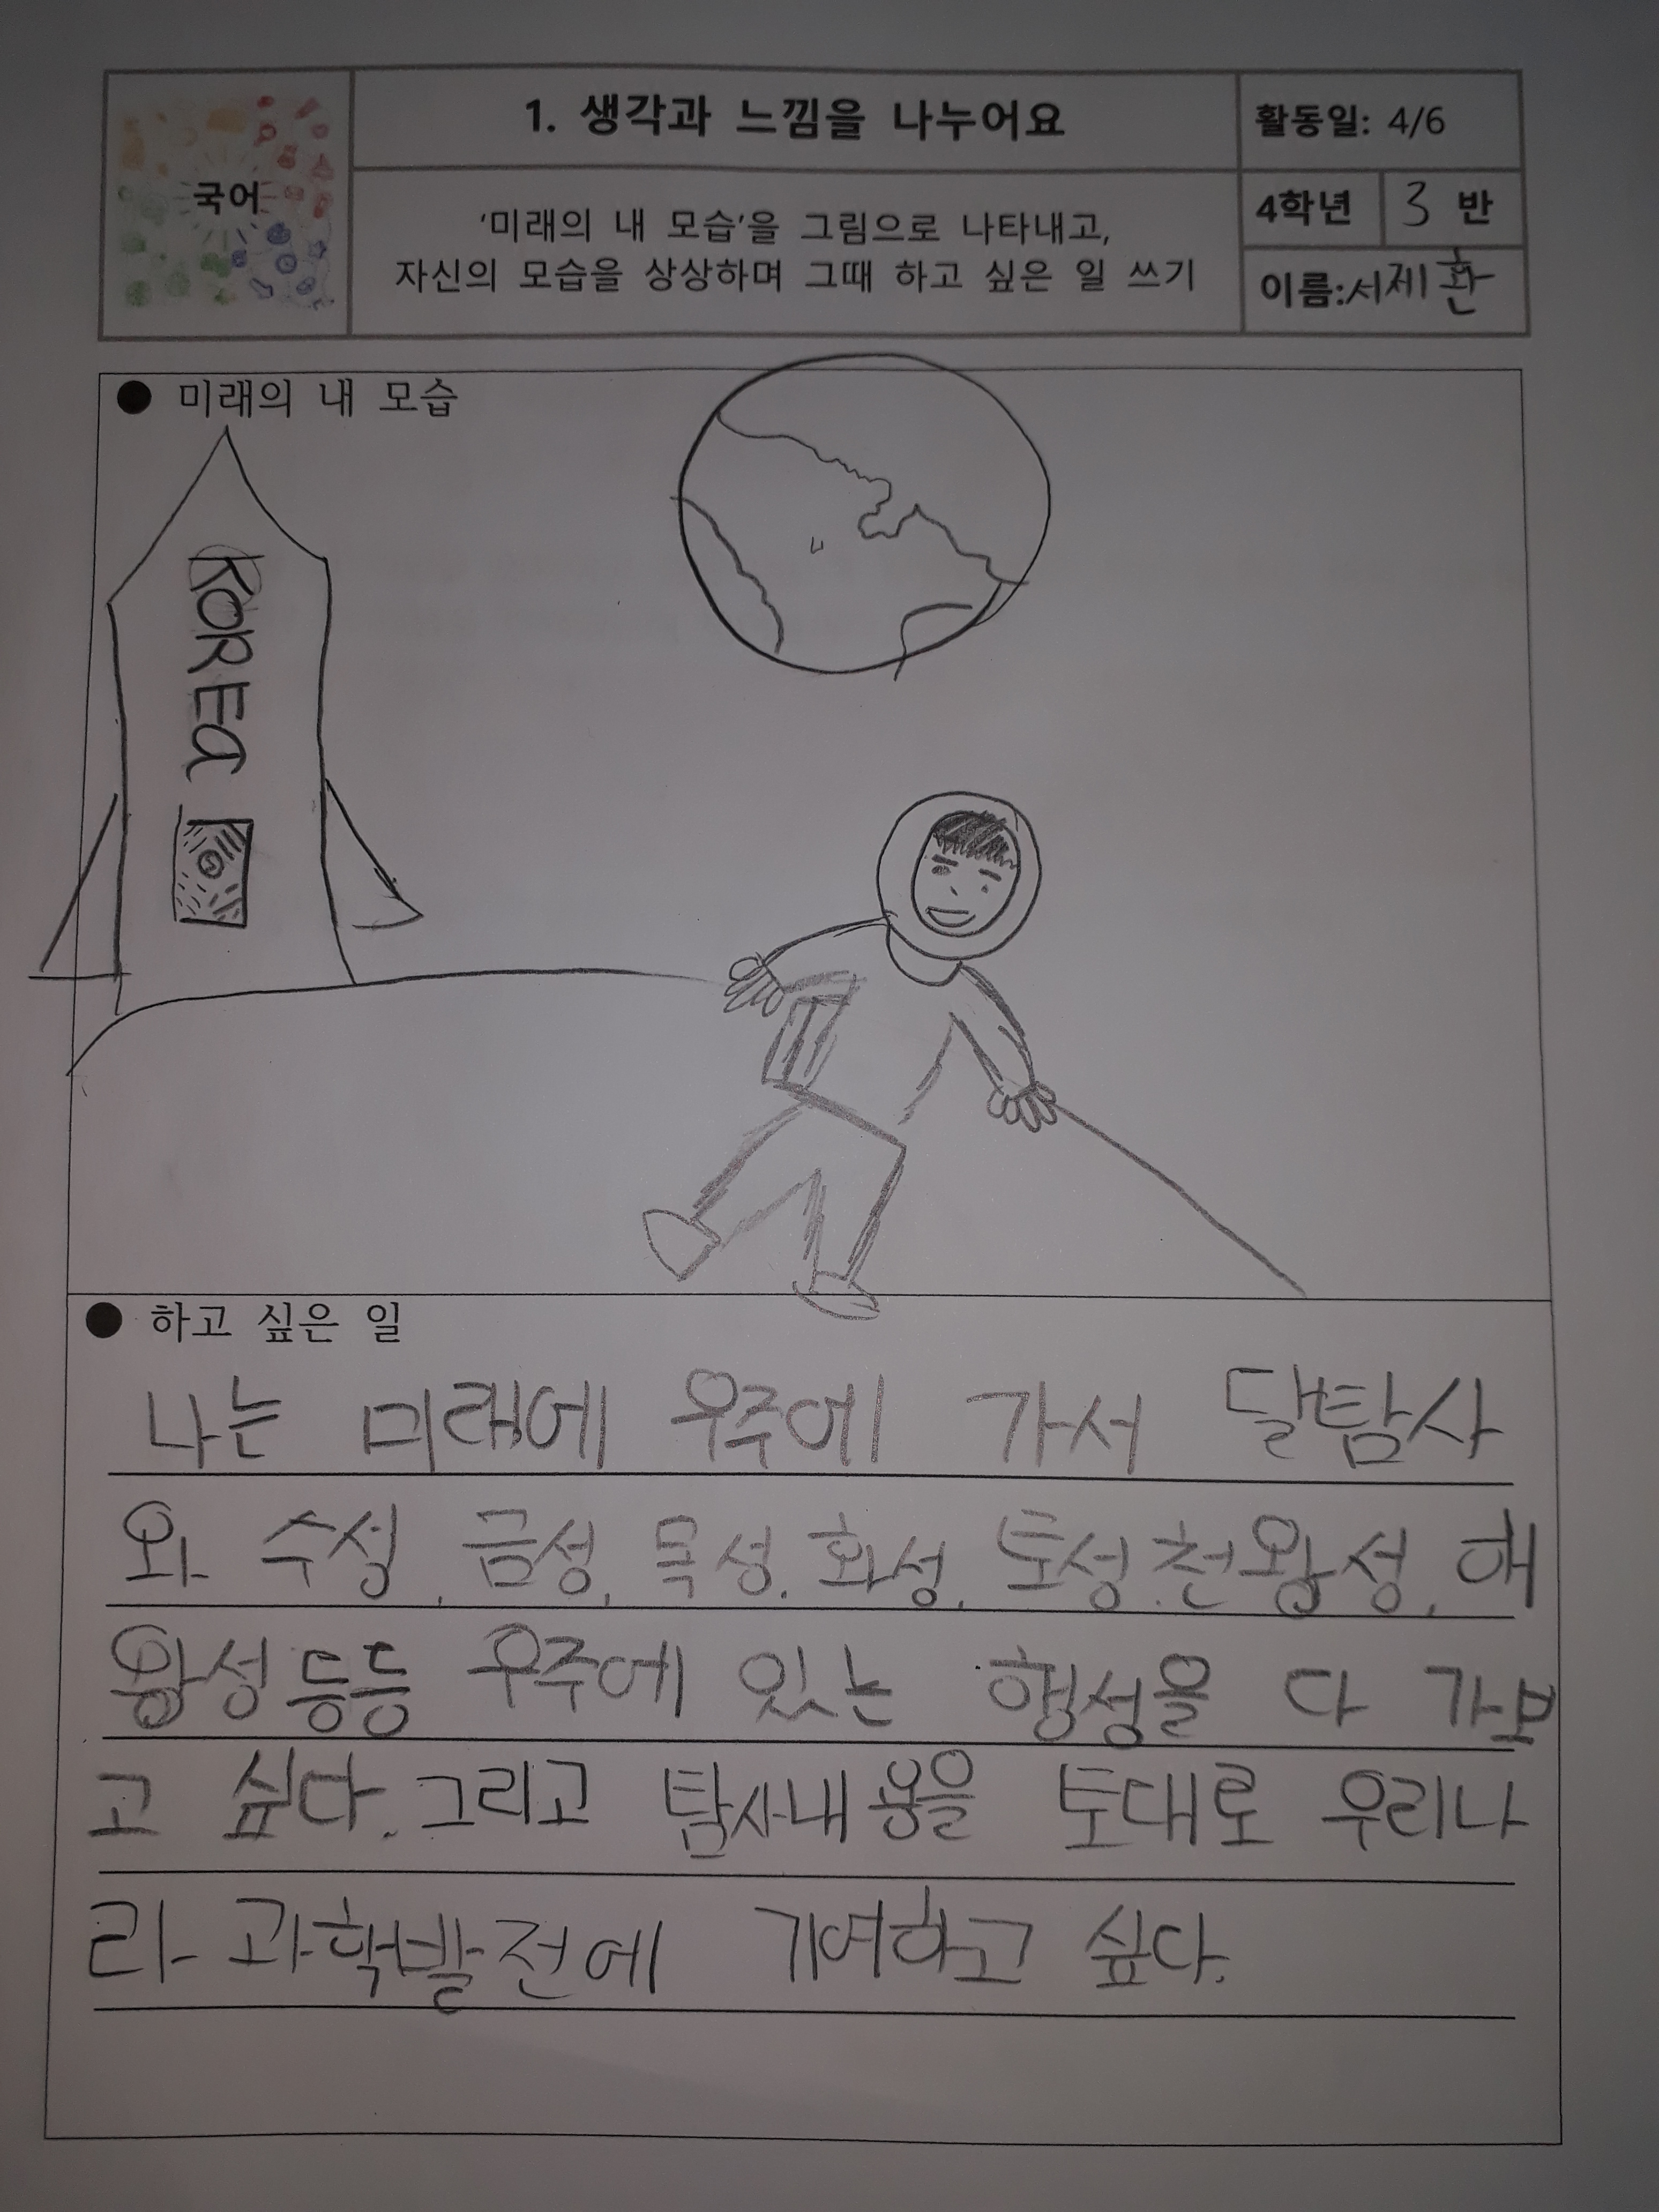 국어
1. 생각과 느낌을 나누어요
활동일: 4/6
'미래의 내 모습'을 그림으로 나타내고,
자신의 모습을 상상하며 그때 하고 싶은 일 쓰기
4학년 3 반
이름:서제환
● 미래의 내 모습
KOREa
● 하고 싶은 일
나는 미래에 우주에 가서 달탐사
와 수성, 금성, 목성, 화성, 토성, 천왕성, 해
왕성 등등 우주에 있는 행성을 다 가보
고 싶다. 그리고 탐사내용을 토대로 우리나
라 과학발전에 기여하고 싶다.